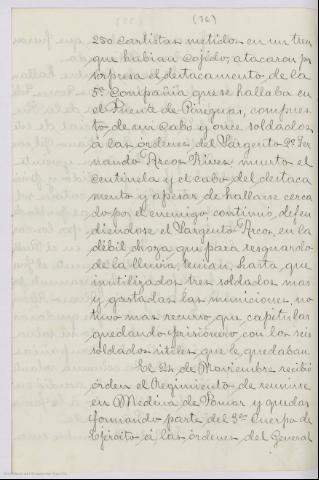 (36)
250 Carlistas metidos en un tren
que habian cojido, atacaron por
sorpresa el destacamento de la
5ª Compañia que se hallaba en
el Puente de compues
to de un Cabo y once soldados
á las órdenes del Sargento 2º Fer
nando Arcos muerto el
centinela y el cabo del destaca
mento y apesar de hallarse cerca
do por el enemigo, continuó defen
diendose el Sargento Arcos, en la
débil choza que para resguardo
de la lluvia, tenian, hasta que
inutilizados tres soldados mas
y gastadas las municiones, no
tuvo mas recurso que capitular
quedando prisionero con los seis
soldados útiles que le quedaban.
El 24 de Noviembre recibió
órden el Regimiento de reunirse
en Medina de Pomar y quedar
formando parte del 3er Cuerpo de
Ejército á las órdenes del General